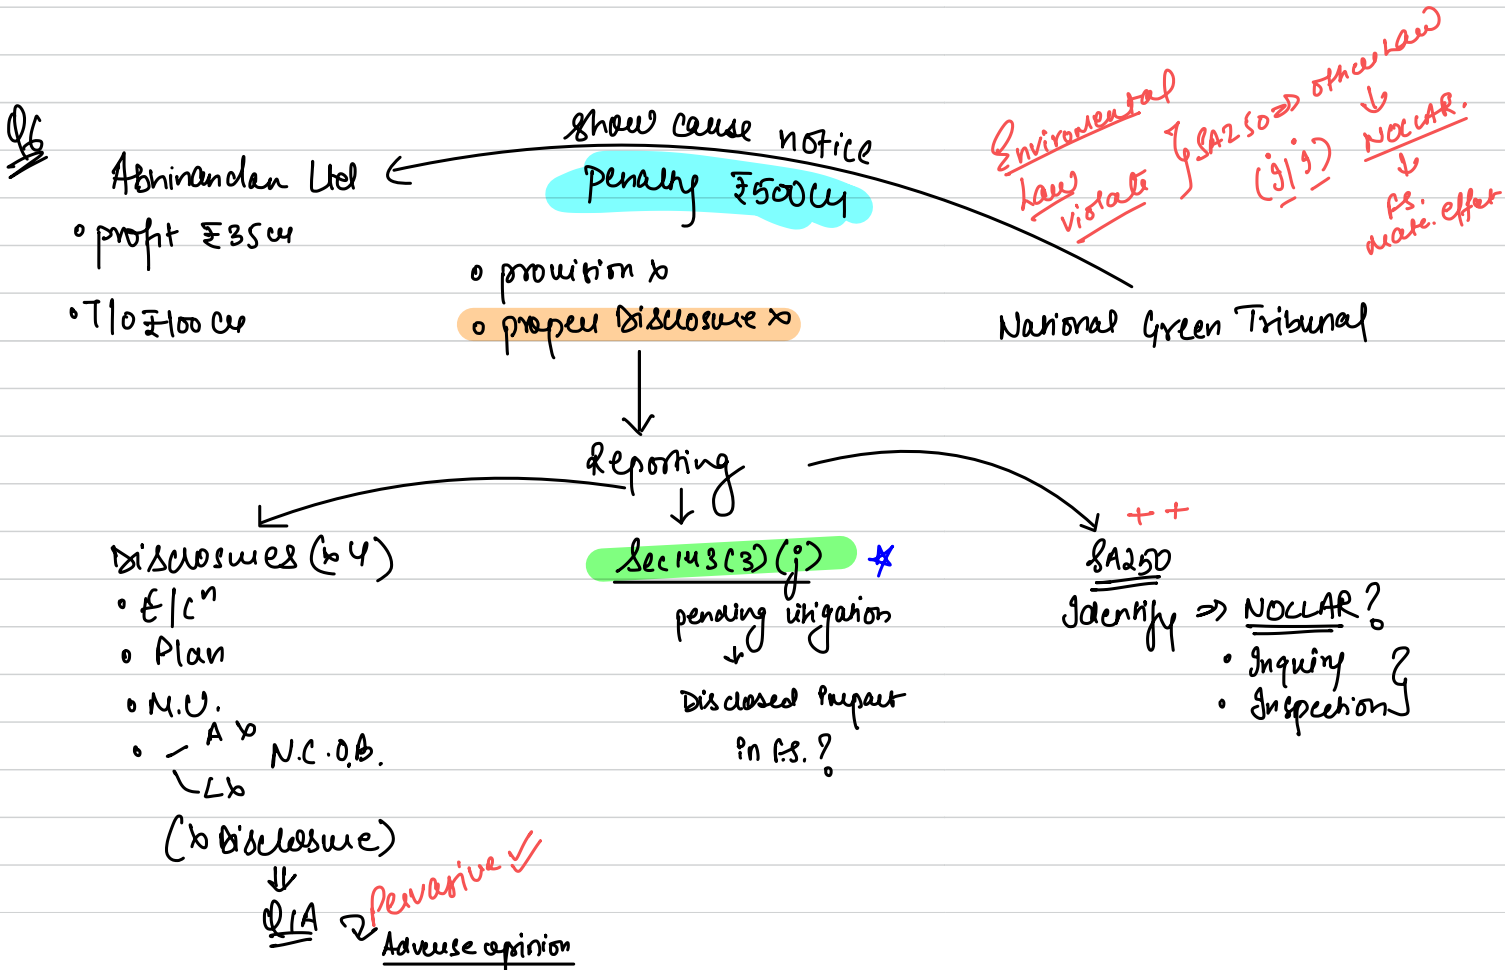 Q6
show cause notice
Abhinandan Ltd
penalty ₹500cr
• profit ₹35cr
• T/o ₹100cr
• provision x
• proper Disclosure x
National Green Tribunal
Enviromental
Law
violate
SA250 => other Law
(g/g)
NOCLAR.
FS.
mate. effect
Reporting
Disclosures (x4)
• E/Cⁿ
• Plan
• M.U.
• - A x
L x
N.C.O.B.
(x Disclosure)
Q/A
Pervasive
Adverse opinion
Sec 143(3)(j)
pending litigation
Disclosed Impact
in F.S. ?
++
SA250
Identify => NOCLAR?
• Inquiry
• Inspection
?